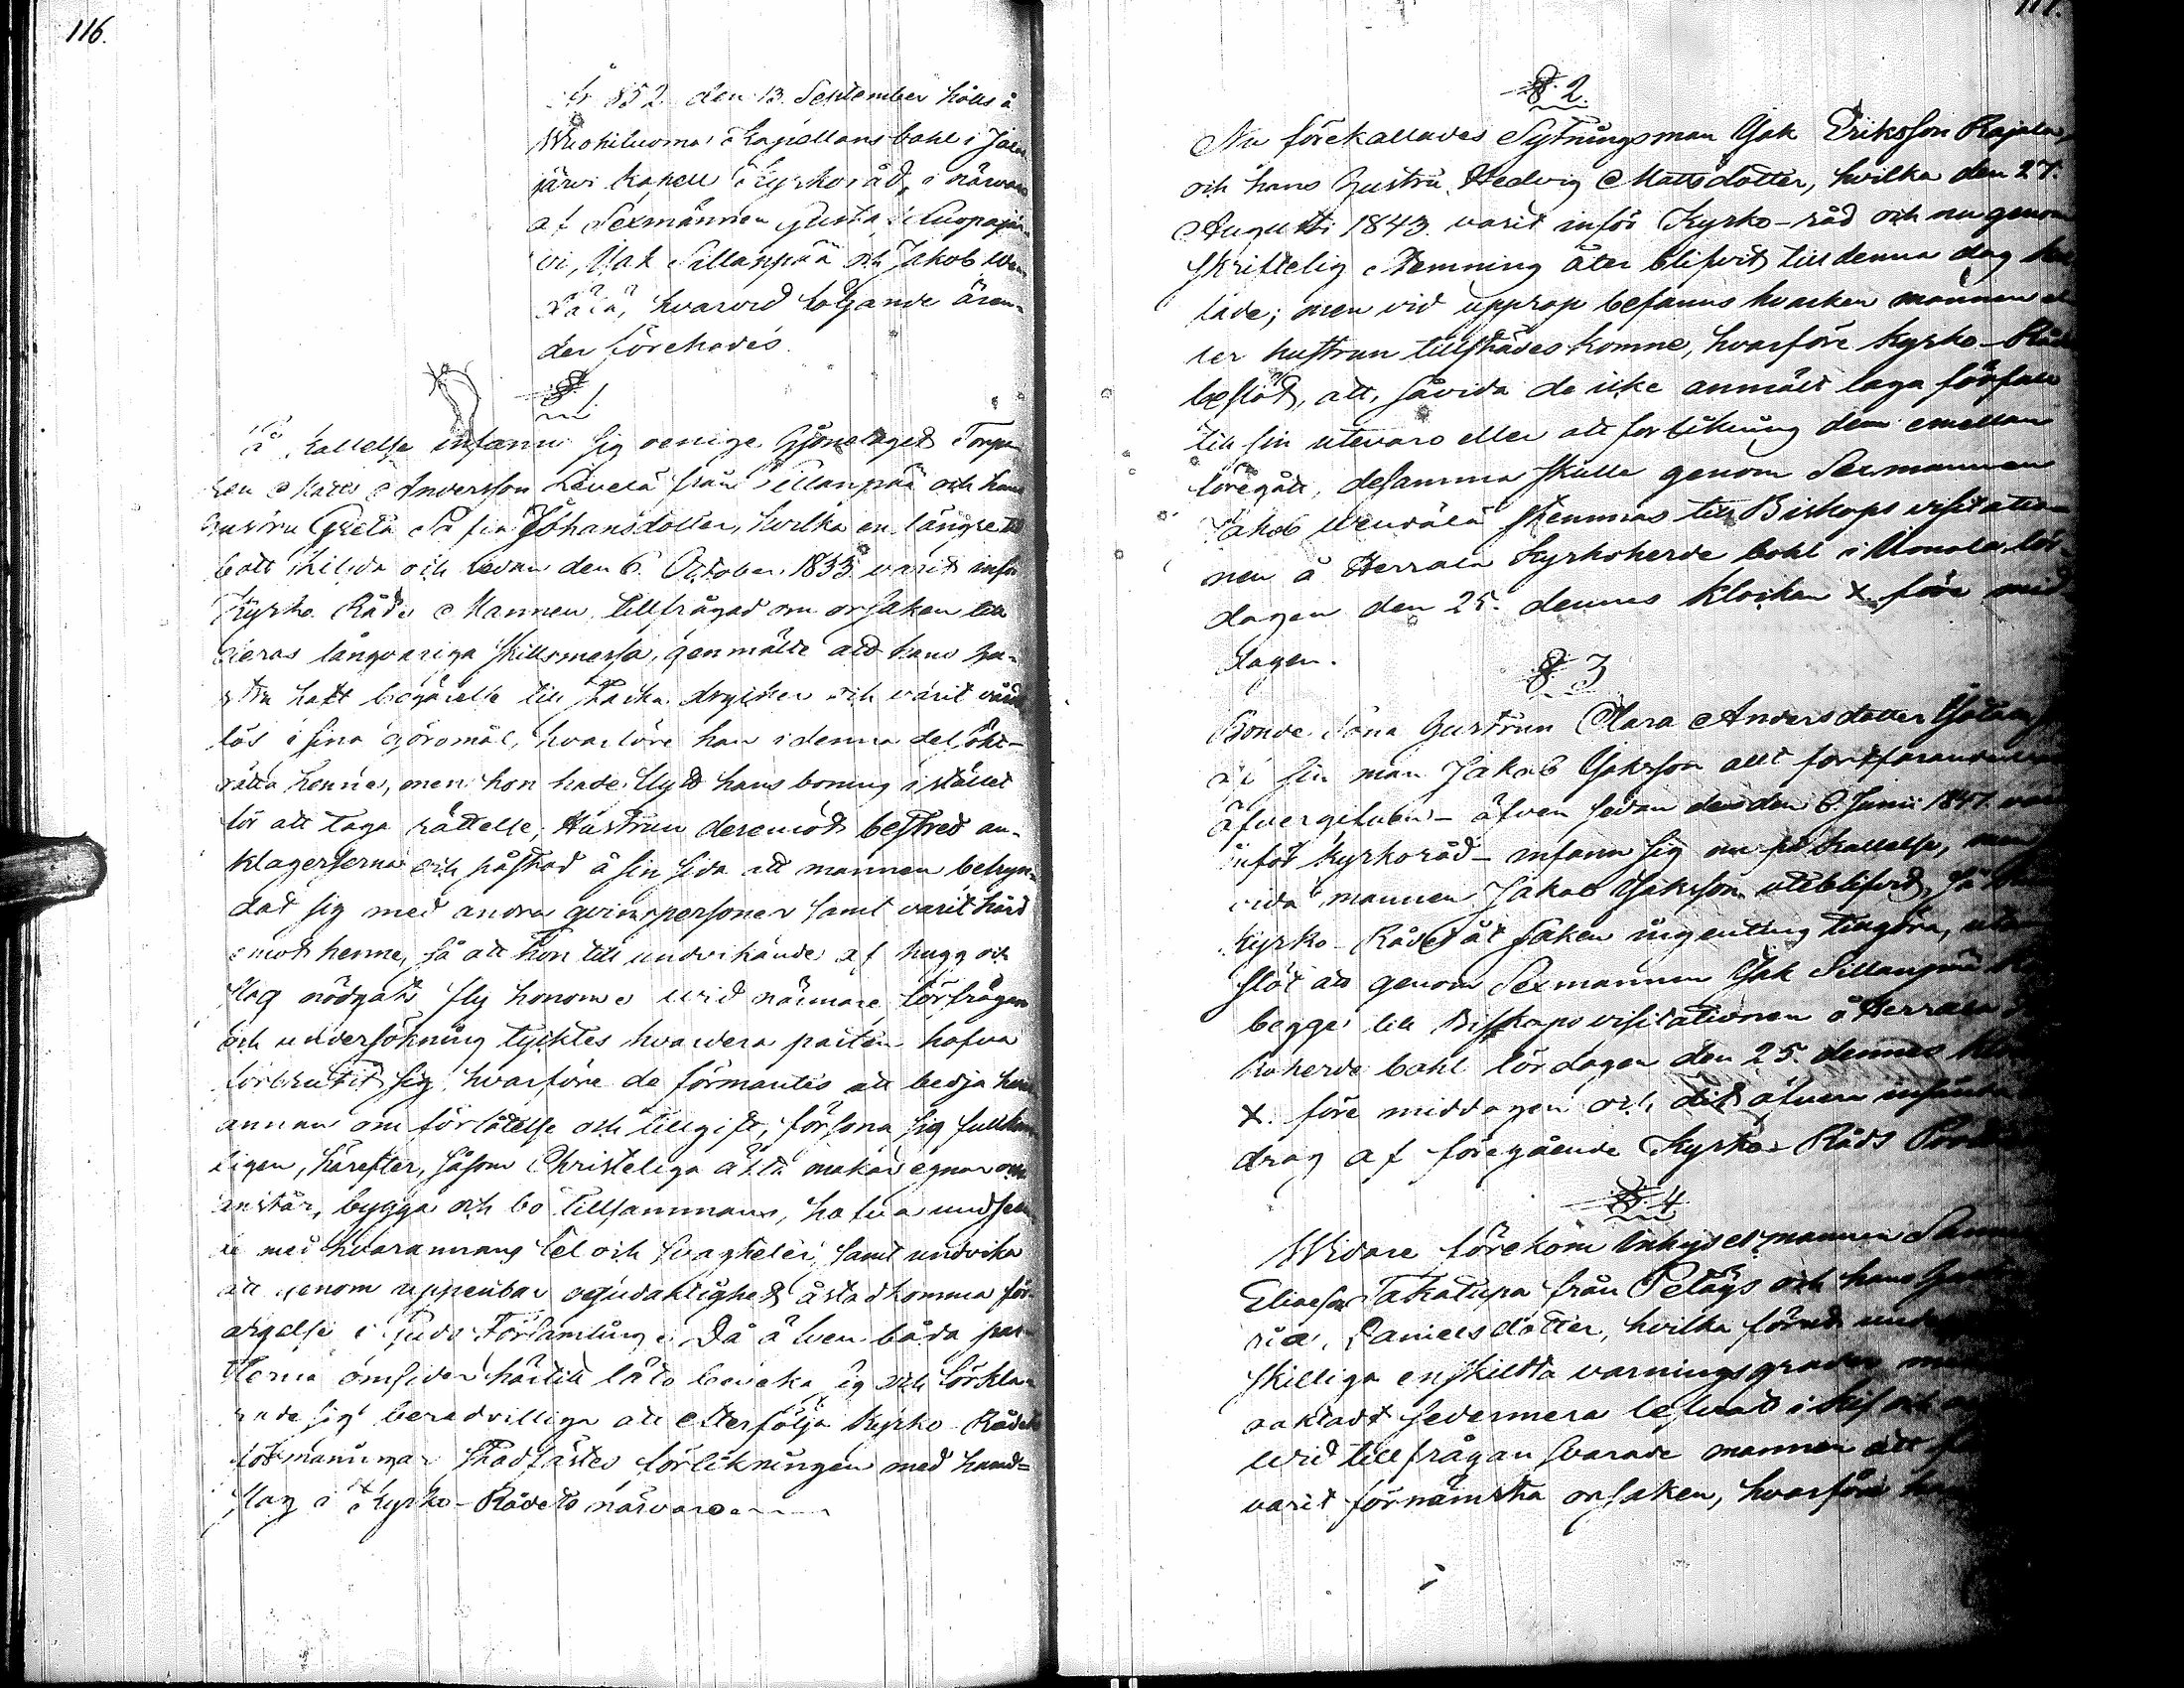 116.
År 1852 den 13. September hölls å
Wuohiluoma Kapellans bohl i Jala-
järvi Kapell Kyrkoråd, i närvaro
af Sexmännen Gusta Luopajär-
vi, Isak Sillanpää och Jakob
hvarvid följande ären-
der förehades.
§ 1.
På kallelse infann sig oenige Hjonelaget Torpa-
ren Matts Andersson från Sillanpää och hans
hustru Greta Sofia Johansdotter, hvilka en längre tid
bott skilda och sedan den 6. October 1833 varit inför
Kyrko Råde. Mannen tillfrågad om orsaken till
deras långvariga skillsmessa, genmälte att hans hu-
stru haft begärelse till starka drycker och varit vård-
lös i sina göromål, hvarföre han i denna del sökt
rätta henne, men hon hade flytt hans boning i stället
för att taga rättelse; Hustrun deremot bestred an-
klagelserna och påstod å sin sida att mannen besyn-
dat sig med andra qvinspersoner samt varit hård
emot henne, så att hon till undvikande af hugg och
slag nödgats fly honom. Wid närmare förfrågan
och undersökning tycktes hvardera parten hafva
förbrutit sig, hvarföre de förmantes att bedja hvar-
annan om förlåtelse och tillgift, försona sig fullkom-
ligen, härefter, såsom Christeliga äkta makar egnar och
anstår, bygga och bo tillsammans, hafva undseen-
de med hvarannans fel och svagheter, samt undvika
att genom uppenbar ogudaktighet åstadkomma för-
argelse i Guds Församling. Då äfven båda par-
terna omsider härtill läto beveka sig och förkla-
rade sig beredvilliga att efterfölja Kyrko Rådets
förmaningar stadfästes förlikningen med hand-
slag i Kyrko-Rådets närvaro
117.
§ 2.
Nu förekallades Sytningsman Isak Eriksson Rajala,
och hans hustru Hedvig Mattsdotter, hvilka den 27.
Augusti 1843 varit inför Kyrko-råd och nu genom
skriftelig stemning åter blifvit till denna dag kal-
lade; men vid upprop befanns hvarken mannen el-
ler hustrun tillstädes komne, hvarföre Kyrko-Rådet
beslöt, att, såvida de icke anmält laga förfall
till sin utevaro eller att förlikning dem emellan
föregått, desamma skulle genom Sexmannen
Jakob stemmas till Biskops visitatio-
nen å Herrala Kyrkoherde bohl i Ilmola lör-
dagen den 25. dennes klockan X före mid-
dagen.
§ 3
Bonde Sona hustrun Clara Andersdotter
af sin man Jakob Isaksson allt fortfarande
öfvergifven – äfven sedan den 6. Junii 1847
inför kyrkoråd – infann sig nu på kallelse, men
vida mannen Jakob Isaksson uteblifvit, så
Kyrko-Rådet åt saken ingenting tillgöra, utan
slöt att genom Sexmannen Isak Sillanpää
begge till Biskops visitationen å Herrala
koherde bohl lördagen den 25. dennes
X. före middagen och dit äfven insända
drag af föregående Kyrko-Råds
§ 4
Widare förekom Inhysesmannen
Eliasson Takalupa från Petäys och hans
ria Danielsdotter, hvilka förut
skilliga enskildta varningsgrader
aktadt sedermera lefvat i kif och
Wid tillfrågan svarade mannen att
varit förnämsta orsaken, hvarföre